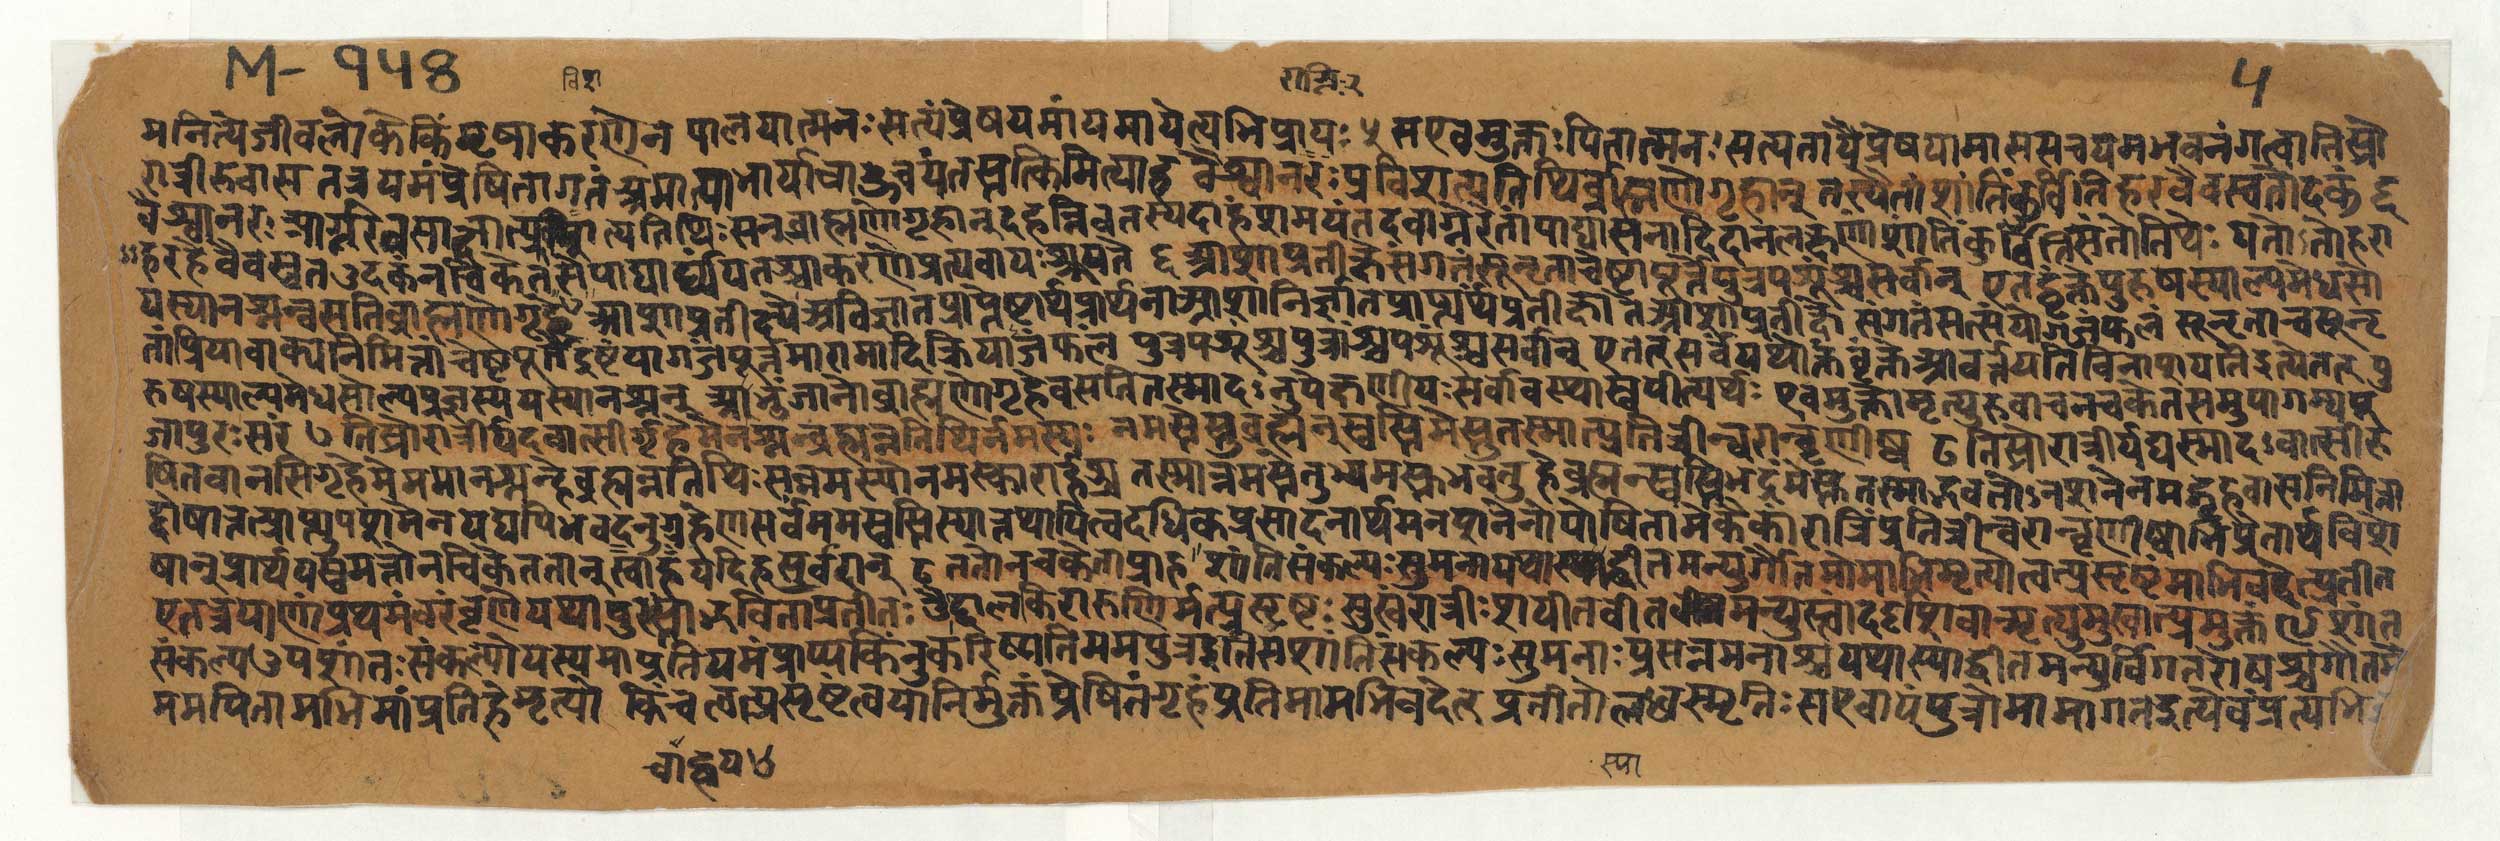 M-१५४
विश
रात्रिः२
५
मनित्ये जीवलोके किं मृषाकरणेन पालयात्मनः सत्यं प्रेषय मां यमायेत्यभिप्रायः ५ स एवमुक्तः पितात्मनः सत्यतायै प्रेषयामास स च यमभवनं गत्वा तिस्रो
रात्रीरुवास तत्र यमं प्रेषितागतं अमात्या भार्या वा ऊचुर्यंतस्तत्किमित्याह वैश्वानरः प्रविशत्यतिथिर्ब्राह्मणो गृहान् तस्यैतां शांतिं कुर्वंति हर वैवस्वतोदकं
वैश्वानरः अग्निरेव साक्षात्प्रविशत्यतिथिः सन् ब्राह्मणो गृहान् दहन्निव तस्य दाहं शमयंत इवाग्नेरेतां पाद्यासनादिदानलक्षणां शांतिं कुर्वंति संतोतिथेः यतोऽतो हरा
हर हे वैवस्वत उदकं नचिकेतसे पाद्यार्थं यतश्चाकरणे प्रत्यवायः श्रूयते ६ आशाप्रतीक्षे संगतं सूनृतां चेष्टापूर्त्ते पुत्रपशूंश्च सर्वान् एतद्वृंक्ते पुरुषस्याल्पमेधसो
यस्यानश्नन्वसति ब्राह्मणो गृहे आशाप्रतीक्ष्ये अविज्ञातप्राप्येष्टार्थप्रार्थना आशा निर्ज्ञातप्राप्यार्थप्रतीक्षा ते आशाप्रतीक्षे संगतं सत्संयोगजं फलं सूनृतां च सूनृ
तां प्रिया वाक्यनिमित्तां चेष्टापूर्ते इष्टं यागजं पूर्त्तमारामादिक्रियाजं फलं पुत्रपशूंश्च पुत्रांश्च पशूंश्च सर्वान् एतत् सर्वं यथोक्तं वृंक्ते आवर्जयति विनाशयतीत्येतत् पु
रुषस्याल्पमेधसोल्पप्रज्ञस्य यस्यानश्नन् अभुंजानो ब्राह्मणो गृहे वसति तस्माद नुपेक्षणीयः सर्वावस्थास्वपीत्यर्थः एवमुक्तो मृत्युरुवाच नचिकेतसमुपागम्य पू
जापुरःसरं ७ तिस्रो रात्रीर्यदवात्सीर्गृहे मेनश्नन्ब्रह्मन्नतिथिर्नमस्यः नमस्तेस्तु ब्रह्मन् स्वस्ति मेस्तु तस्मात्प्रति त्रीन्वरान्वृणीष्व ८ तिस्रो रात्रीर्यद्यस्माद वात्सीरु
षितवानसि गृहे मे ममानश्नन् हे ब्रह्मन्नतिथिः सन्नमस्यो नमस्कारार्हश्च तस्मान्नमस्तेतुभ्यमस्तु भवतु हे ब्रह्मन् स्वस्ति भद्रं मेस्तु तस्माद्भवतोऽनशनेन मद्गृहवासनिमित्ता
द्दोषान्नत्प्राप्युपशमेन यद्यपि भवदनुग्रहेण सर्वं मम स्वस्ति स्यात्तथापि त्वदधिकप्रसादनार्थमनशनेनोपोषितामेकैकां रात्रिं प्रति त्रीन्वरान्वृणीष्वाभिप्रेतार्थविशे
षान् प्रार्थयस्व मत्तो नचिकेत तान् स्वाहं यदिह सुर्वरान् ८ ततो नचकेता प्राह शांतिसंकल्पः सुमना यथा स्याद्वीतमन्युर्गौतमो माभि मृत्यो त्वत्प्रसृष्टं माभिवदेत्प्रतीत
एतत्त्रयाणां प्रथमं वरं वृणे यथा पुरस्ताद्भविता प्रतीतः औद्दालकिरारुणिर्मत्प्रसृष्टः सुखं रात्रीः शयीत वीतमन्युस्त्वां ददृशिवान्मृत्युमुखात्प्रमुक्तं शांत
संकल्प उपशांतः संकल्पो यस्य मा प्रति यमं प्राप्य किं नु करिष्यति मम पुत्र इति स शांतिसंकल्पः सुमनाः प्रसन्नमनाश्च यथा स्याद्वीतमन्युर्विगतरोषश्च गौतमो
मम पिता मभि मां प्रति हे मृत्यो किंच त्वत्प्रसृष्टं त्वया निर्मुक्तं प्रेषितं गृहं प्रति मामभिवदेत् प्रतीतो लब्धस्मृतिः स एवायं पुत्रो मामागत इत्येवं प्रत्यभि
स्या